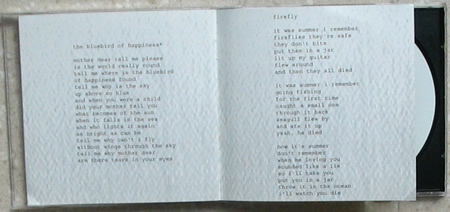 the bluebird of happiness*
mother dear tell me please
is the world really round
tell me where is the bluebird
of happiness found
tell me why is the sky
up above so blue
and when you were a child
did your mother tell you
what becomes of the sun
when it falls in the sea
and who lights it again
as bright as can be
tell me why can't i fly
without wings through the sky
tell me why mother dear
are there tears in your eyes
firefly
it was summer i remember
fireflies they're safe
they don't bite
put them in a jar
lit up my guitar
flew around
and then they all died
it was summer i remember
going fishing
for the first time
caught a small one
threw it back
seagull flew by
and ate it up
yeah, he died
now it's summer
don't remember
when me loving you
sounded like a lie
so i'll take you
put you in a jar
throw it in the ocean
i'll watch you die